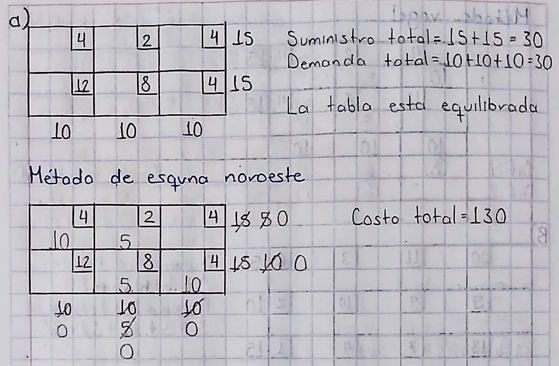 a)
4 2 4 15
12 8 4 15
10 10 10
Suministro total = 15 + 15 = 30
Demanda total = 10+10+10 = 30
La tabla está equilibrada
Método de esquna noroeste
4 2 4 15 5 0
10 5
12 8 4 15 10 0
5 10
10 10 10
0 5 0
0
Costo total = 130